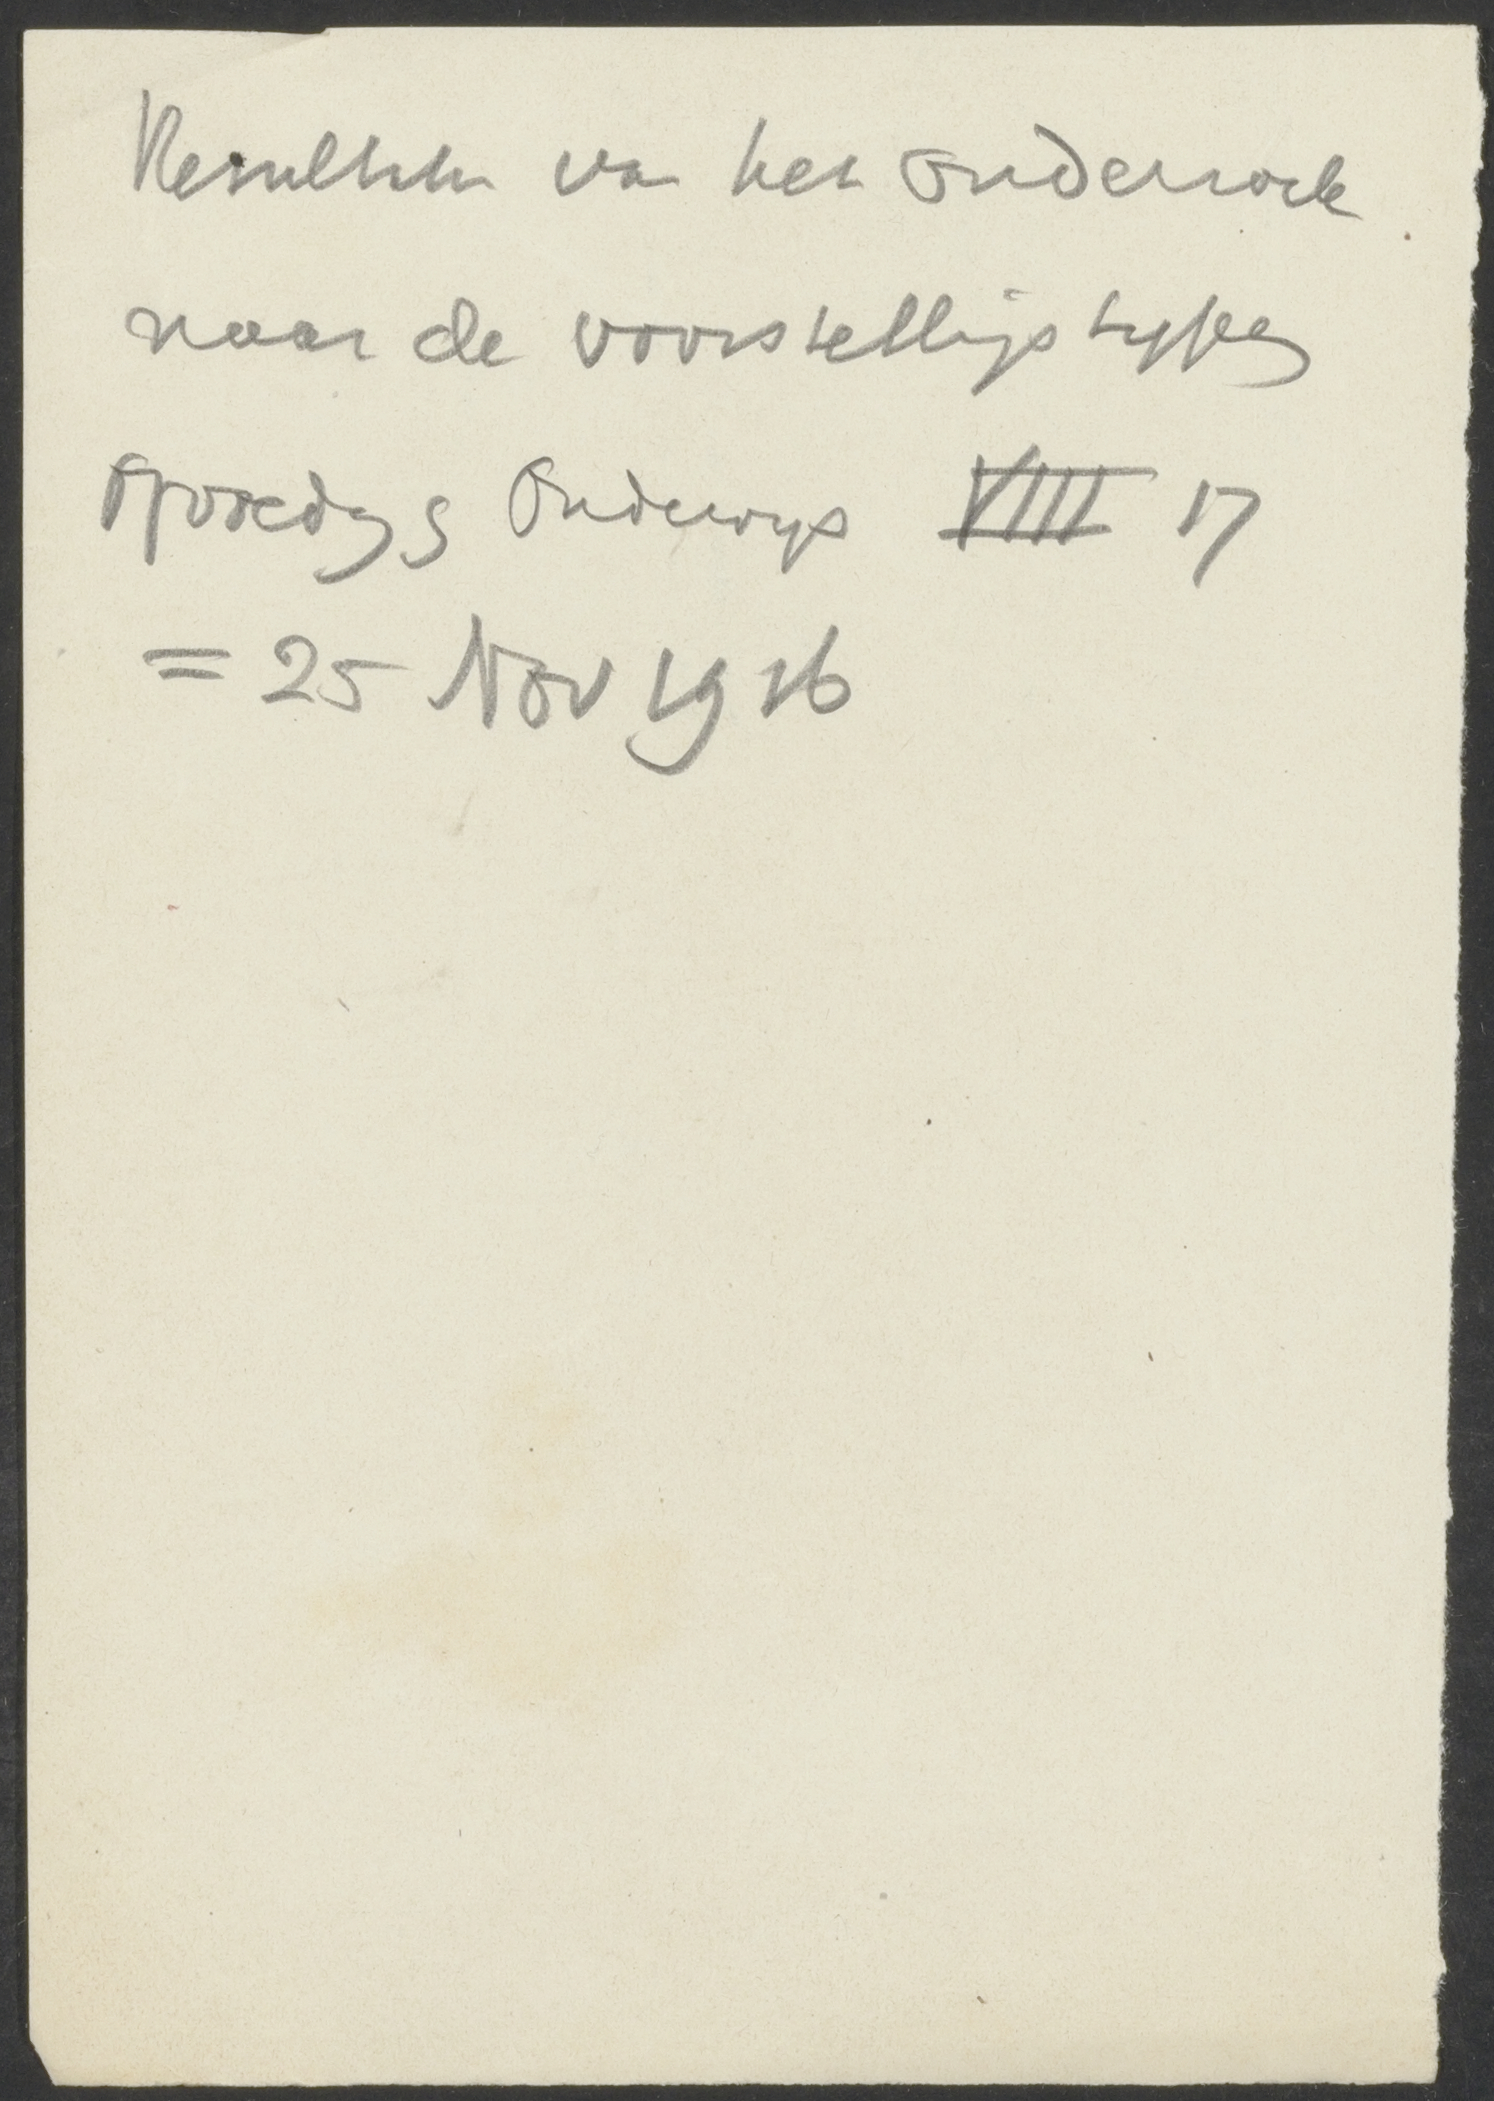 Resultaten van het onderzoek
naar de voorstellingstypen
Opvoeding & Onderwijs VIII 17
= 25 Nov 1916